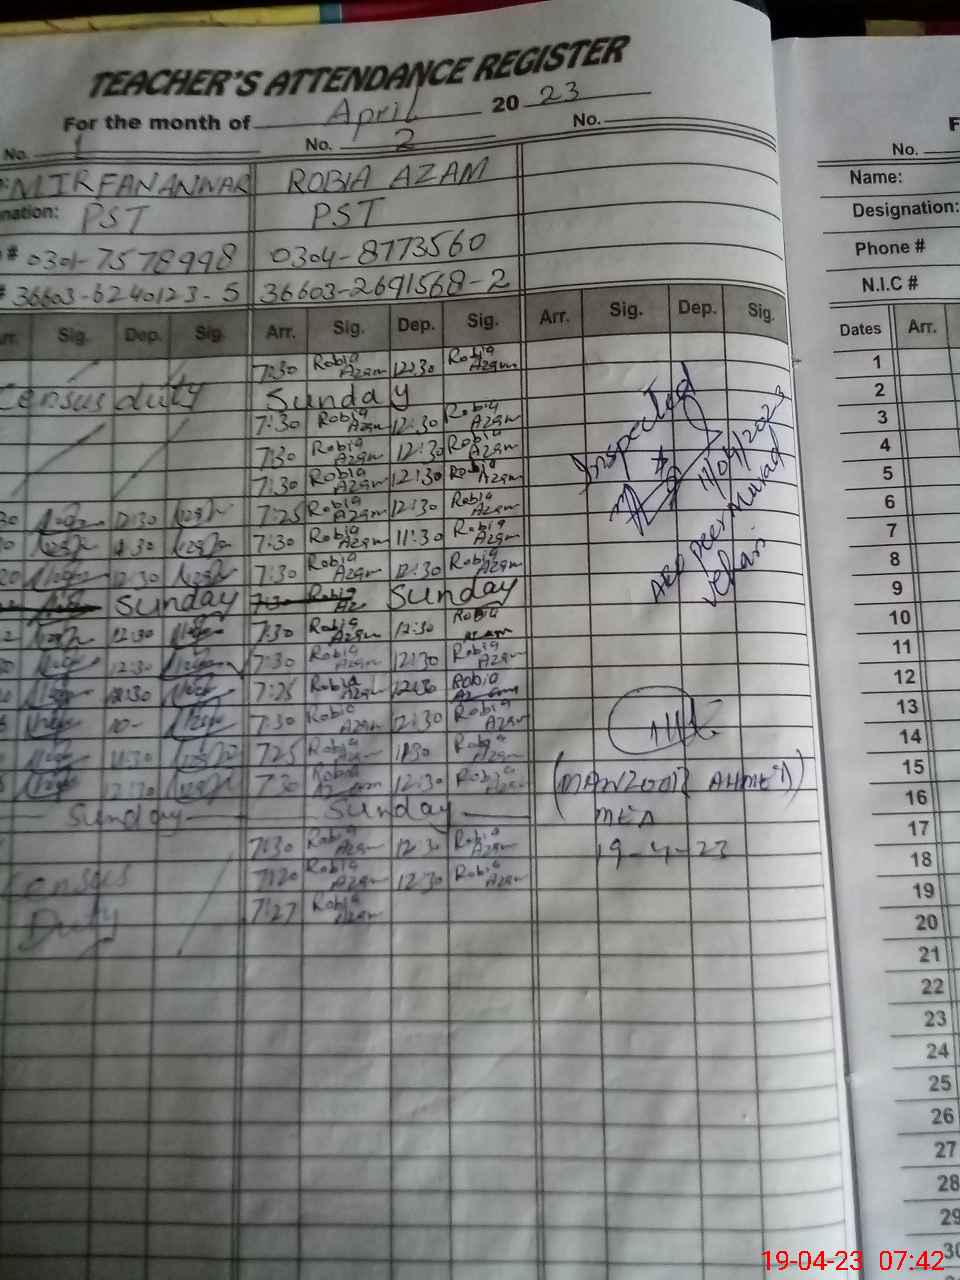 TEACHER'S ATTENDANCE REGISTER
For the month of April 2023
No. 1 No. 2 No.
M IRFAN ANWAR ROBIA AZAM
nation: PST PST
# 0301-7578998 0304-8773560
# 36603-6240123-5 36603-2691568-2
Arr. Sig. Dep. Sig. Arr. Sig. Dep. Sig. Arr. Sig. Dep. Sig.
7:30 Robia Azam 12:30 Robia Azam
Census duty Sunday
7:30 Robia Azam 12:30 Robia Azam
7:30 Robia Azam 12:30 Robia Azam
7:30 Robia Azam 12:30 Robia Azam
30 12:30 7:25 Robia Azam 12:30 Robia Azam
30 7:30 Robia Azam 11:30 Robia Azam
20 12:30 7:30 Robia Azam 12:30 Robia Azam
Sunday 7:30 Robia Az Sunday
12:30 7:30 Robia Azam 12:30 Robia Azam
12:30 7:30 Robia Azam 12:30 Robia Azam
12:30 7:25 Robia Azam 12:30 Robia Azam
10- 7:30 Robia Azam 12:30 Robia Azam
11:30 7:25 Robia Azam 11:30 Robia Azam
12:30 7:30 Robia Azam 12:30 Robia Azam
Sunday Sunday
7:30 Robia Azam 12:30 Robia Azam
Census 7:20 Robia Azam 12:30 Robia Azam
Duty 7:27 Robia Azam
Inspected
11/04/2023
AEO peer Murad
(MANZOOR AHMED)
MEA
19-4-23
F
No.
Name:
Designation:
Phone #
N.I.C #
Dates Arr.
1
2
3
4
5
6
7
8
9
10
11
12
13
14
15
16
17
18
19
20
21
22
23
24
25
26
27
28
29
30
19-04-23 07:42